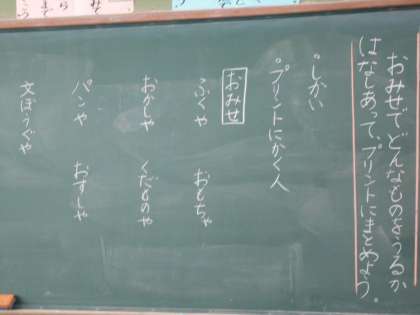 おみせでどんなものをうるか
はなしあって、プリントにまとめよう。
・しかい
・プリントにかく人
おみせ
ふくや　おもちゃ
おかしや　くだものや
パンや　おすしや
文ぼうぐや